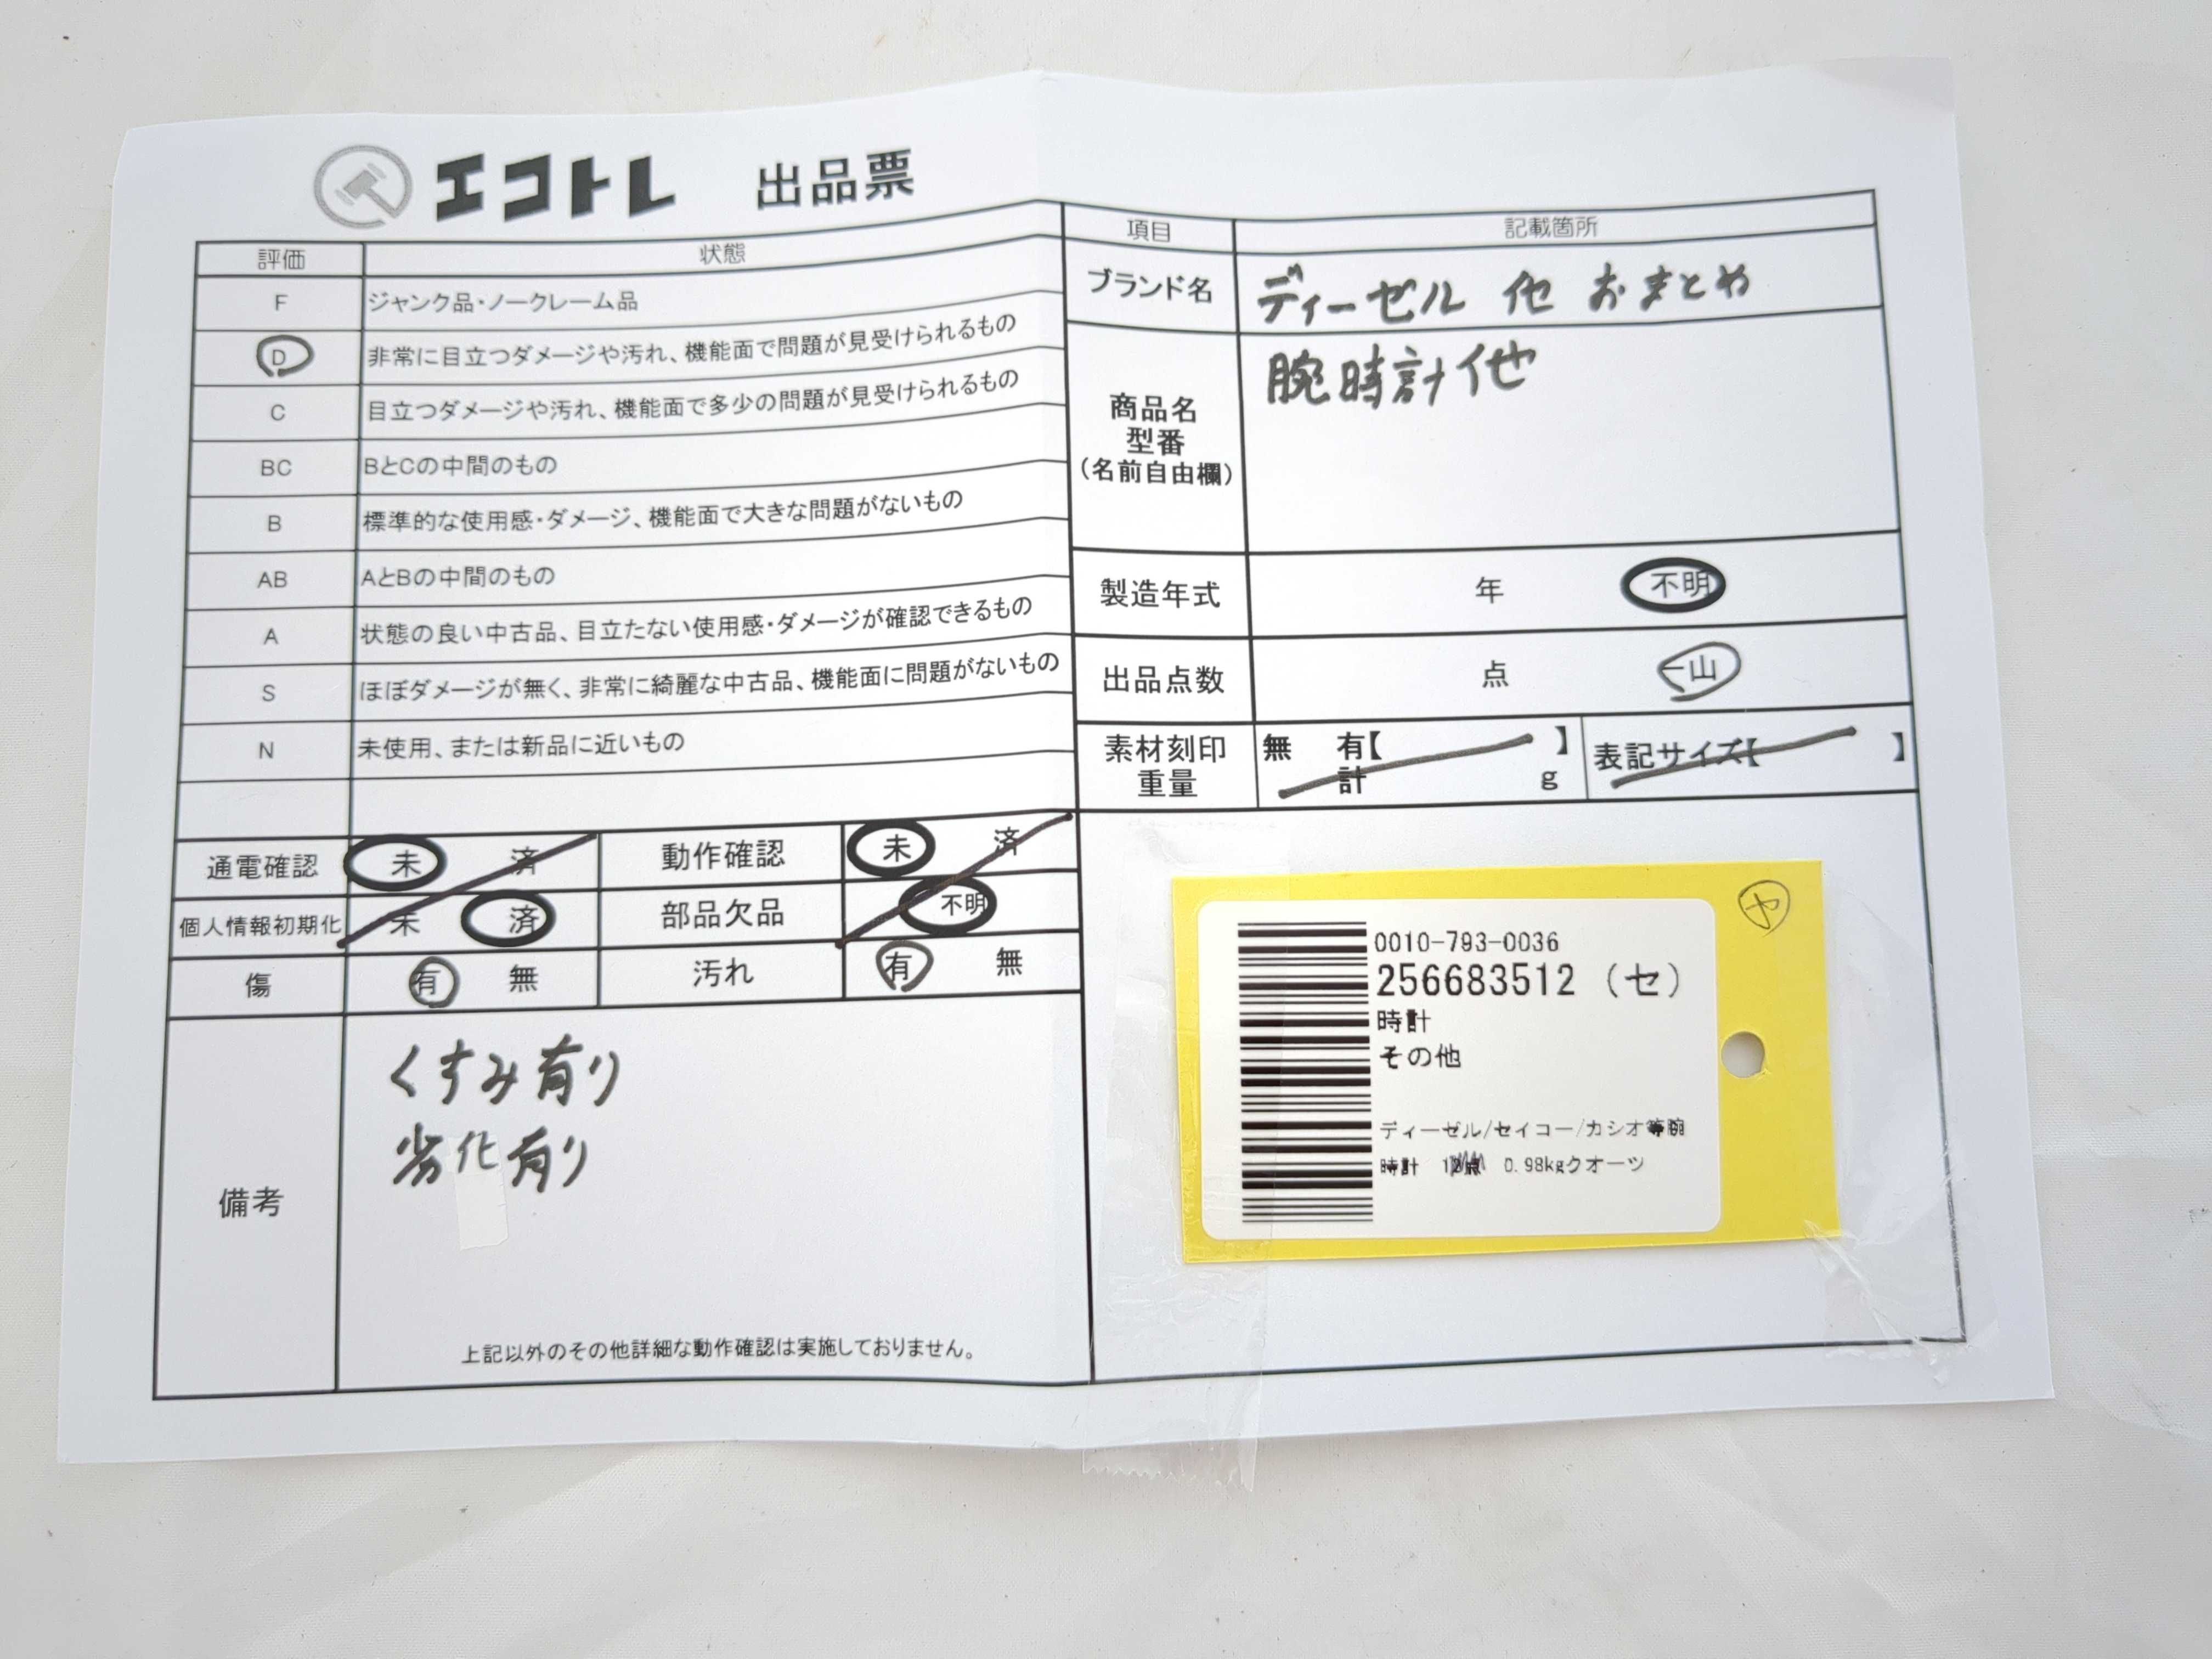 エコトレ 出品票
評価 状態
F ジャンク品・ノークレーム品
D 非常に目立つダメージや汚れ、機能面で問題が見受けられるもの
C 目立つダメージや汚れ、機能面で多少の問題が見受けられるもの
BC BとCの中間のもの
B 標準的な使用感・ダメージ、機能面で大きな問題がないもの
AB AとBの中間のもの
A 状態の良い中古品、目立たない使用感・ダメージが確認できるもの
S ほぼダメージが無く、非常に綺麗な中古品、機能面に問題がないもの
N 未使用、または新品に近いもの
通電確認 未 済 動作確認 未 済
個人情報初期化 未 済 部品欠品 不明
傷 有 無 汚れ 有 無
備考
くすみ有り
劣化有り
上記以外のその他詳細な動作確認は実施しておりません。
項目 記載箇所
ブランド名 ディーゼル 他 おまとめ
商品名
型番
(名前自由欄)
腕時計他
製造年式 年 不明
出品点数 点 一山
素材刻印 無 有【 】 表記サイズ【 】
重量 計 g
ヤ
0010-793-0036
256683512 (セ)
時計
その他
ディーゼル/セイコー/カシオ等腕
時計 0.98kgクオーツ